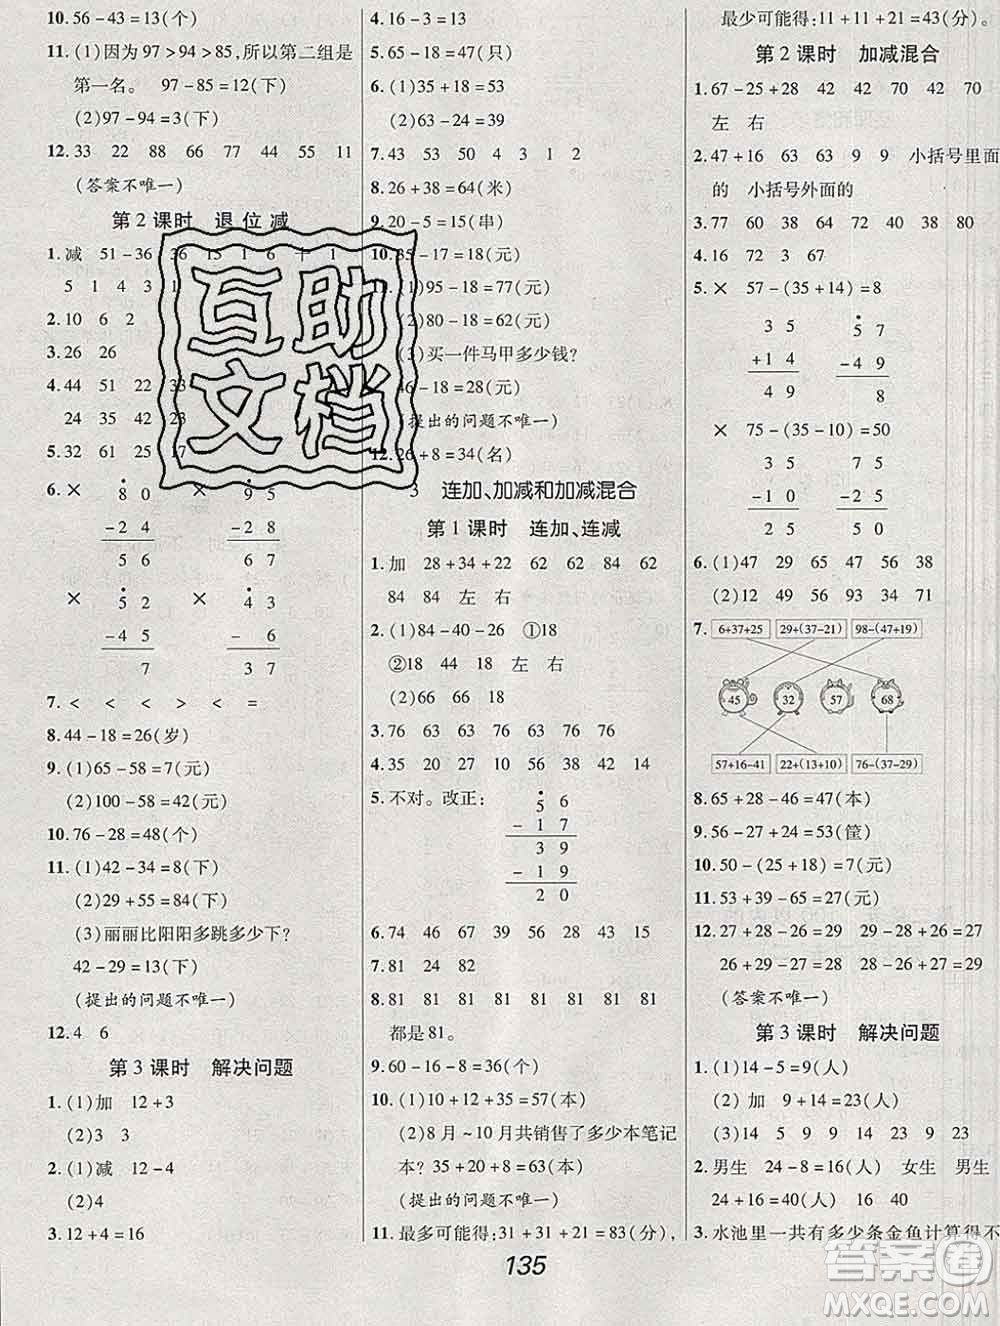 10. 56－43＝13(个)
11. (1)因为 97＞94＞85，所以第二组是
第一名。 97－85＝12(下)
(2)97－94＝3(下)
12. 33 22 88 66 77 44 55 11
(答案不唯一)
第 2 课时 退 位 减
1. 减 51－36 36 15 1 6 十 1
5 1 4 3 1
2. 10 6 2
3. 26 26
4. 44 51 22 33
24 35 42 23
5. 32 61 25 17
6. × 80 × 95
－24 －28
56 67
× 52 × 43
－45 － 6
7 37
7. ＜ ＜ ＜ ＞ ＜ ＝
8. 44－18＝26(岁)
9. (1)65－58＝7(元)
(2)100－58＝42(元)
10. 76－28＝48(个)
11. (1)42－34＝8(下)
(2)29＋55＝84(下)
(3)丽丽比阳阳多跳多少下?
42－29＝13(下)
(提出的问题不唯一)
12. 4 6
第 3 课时 解决问题
1. (1)加 12＋3
(2)3 3
2. (1)减 12－4
(2)4
3. 12＋4＝16
4. 16－3＝13(号)
5. 65－18＝47(只)
6. (1)35＋18＝53
(2)63－24＝39
7. 45 54 63 4 3 1 2
8. 26＋38＝64(米)
9. 20－5＝15(串)
10. 35－17＝18(元)
(1)95－18＝77(元)
(2)80－18＝62(元)
(3)买一件马甲多少钱?
46－18＝28(元)
(提出的问题不唯一)
12. 26＋8＝34(名)
3 连加、加减和加减混合
第 1 课时 连加、连减
1. 加 28＋34＋22 62 62 84 62
84 84 左 右
2. (1)84－40－26 ①18
②18 44 18 左 右
(2)66 66 18
3. 76 63 76 63 76 76
4. 35 22 27 60 42 14
5. 不对。改正： 56
－17
39
－19
20
6. 74 46 67 39 56 28 43 15
7. 81 24 82
8. 81 81 81 81 81 81 81
都是 81。
9. 60－16－8＝36(个)
10. (1)10＋12＋35＝57(本)
(2)8 月～10 月共销售了多少本笔记
本? 35＋20＋8＝63(本)
(提出的问题不唯一)
11. 最多可能得：31＋31＋21＝83(分)，
最少可能得：11＋11＋21＝43(分)。
第 2 课时 加减混合
1. 67－25＋28 42 42 70 42 70
左 右
2. 47＋16 63 63 9 9 小括号里面
的 小括号外面的
3. 77 60 38 64 72 40 38 80
4. 16 72 3 67
5. × 57－(35＋14)＝8
35 57
＋14 －49
49 8
× 75－(35－10)＝50
35 75
－10 －25
25 50
6. (1)27 55 10 47 56 38
(2)12 49 51 38 34 71
7. 6+37+25 29+(37-21) 98-(47+19)
45 32 57 68
57+16-41 22+(13+10) 76-(37-29)
8. 65＋28－46＝47(本)
9. 56－27＋24＝53(筐)
10. 50－(25＋18)＝7(元)
11. 53＋39－65＝27(元)
12. 27＋28－28＝27 29－28＋26＝27
26＋29－28＝27 28－26＋27＝29
(答案不唯一)
第 3 课时 解决问题
1. (1)14－5＝9(人)
(2) 加 9＋14＝23(人)
(3)14 5 9 9 14 23 9 23
2. 男生 24－8＝16(人) 女生 男生
24＋16＝40(人) 16 40
3. 水池里一共有多少条金鱼计算得不
135
互助
文档
答案圈
MXQE.COM